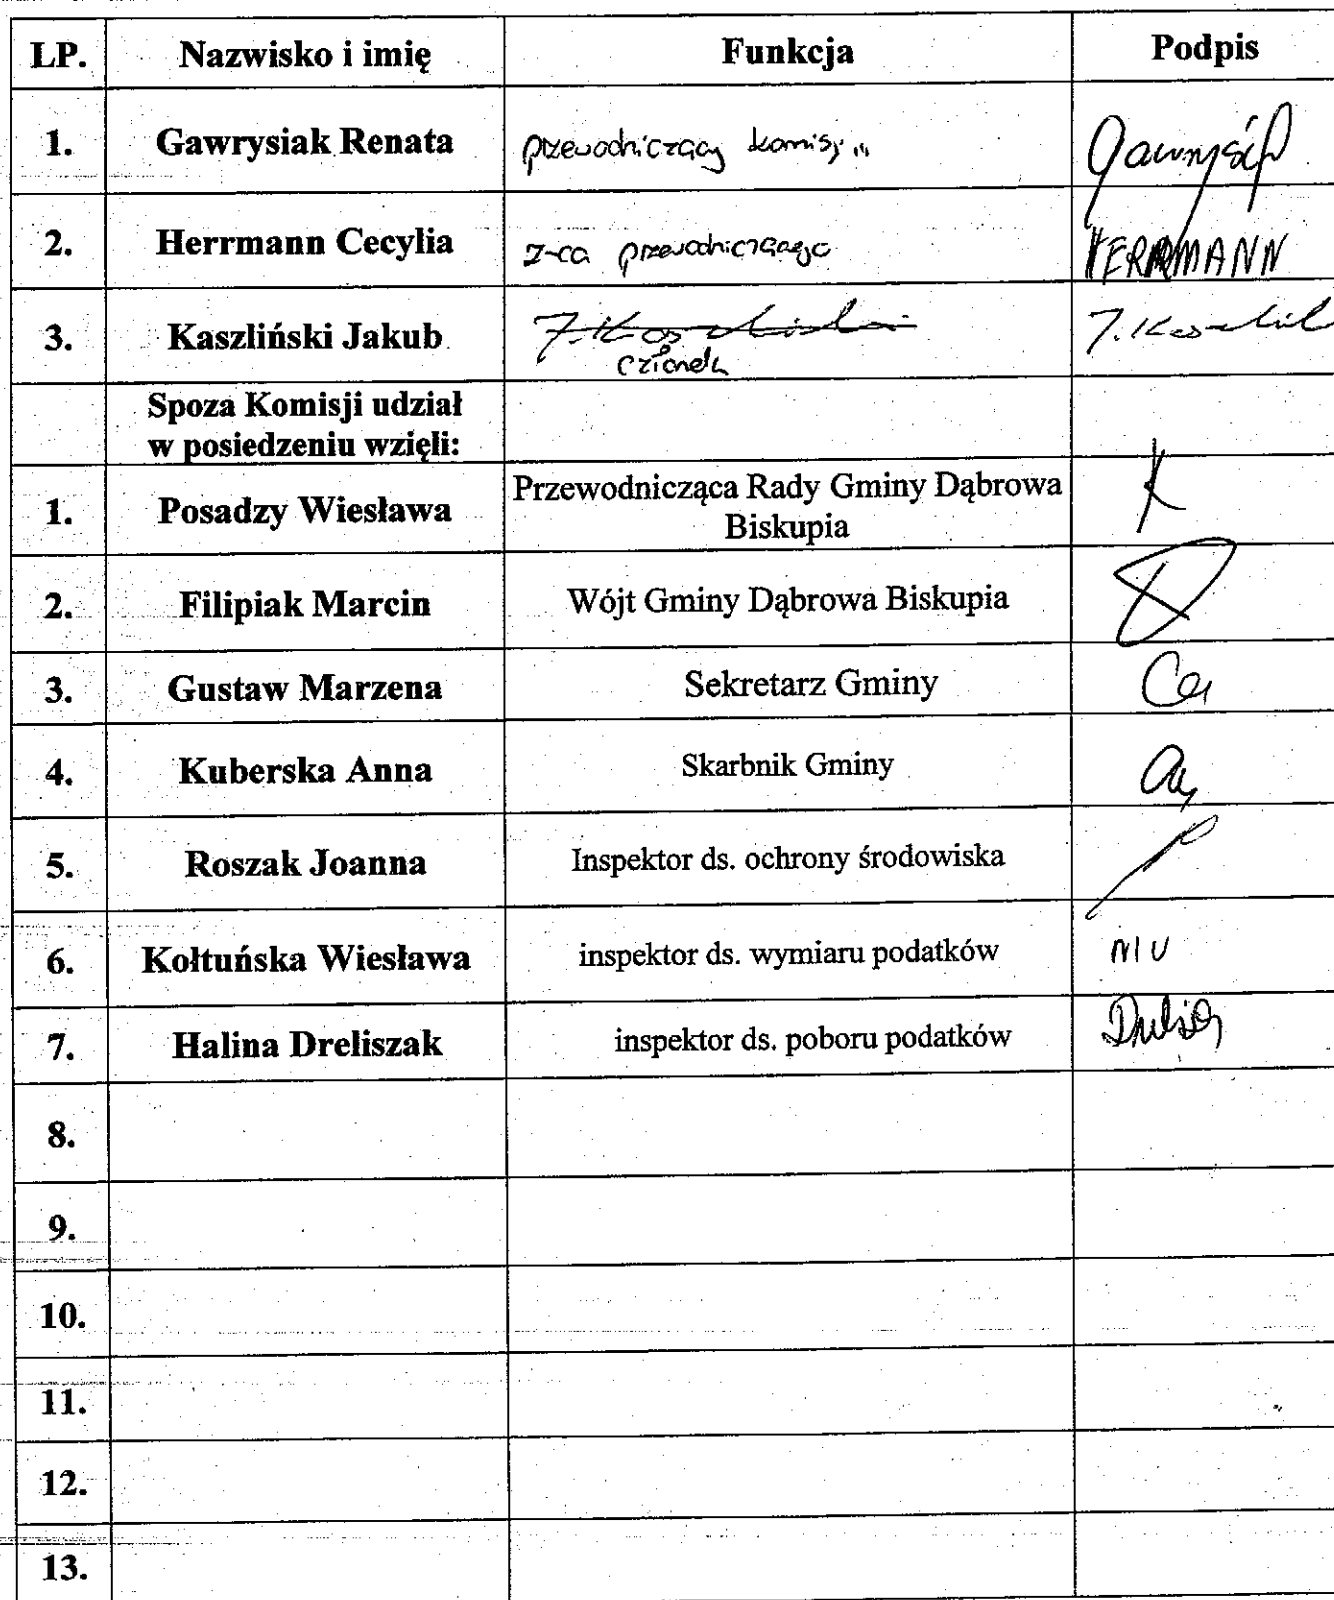 LP. Nazwisko i imię Funkcja Podpis
1. Gawrysiak Renata przewodniczący komisji
2. Herrmann Cecylia z-ca przewodniczącego HERRMANN
3. Kaszliński Jakub
członek
Spoza Komisji udział
w posiedzeniu wzięli:
1. Posadzy Wiesława Przewodnicząca Rady Gminy Dąbrowa
Biskupia
2. Filipiak Marcin Wójt Gminy Dąbrowa Biskupia
3. Gustaw Marzena Sekretarz Gminy
4. Kuberska Anna Skarbnik Gminy
5. Roszak Joanna Inspektor ds. ochrony środowiska
6. Kołtuńska Wiesława inspektor ds. wymiaru podatków
7. Halina Dreliszak inspektor ds. poboru podatków
8.
9.
10.
11.
12.
13.